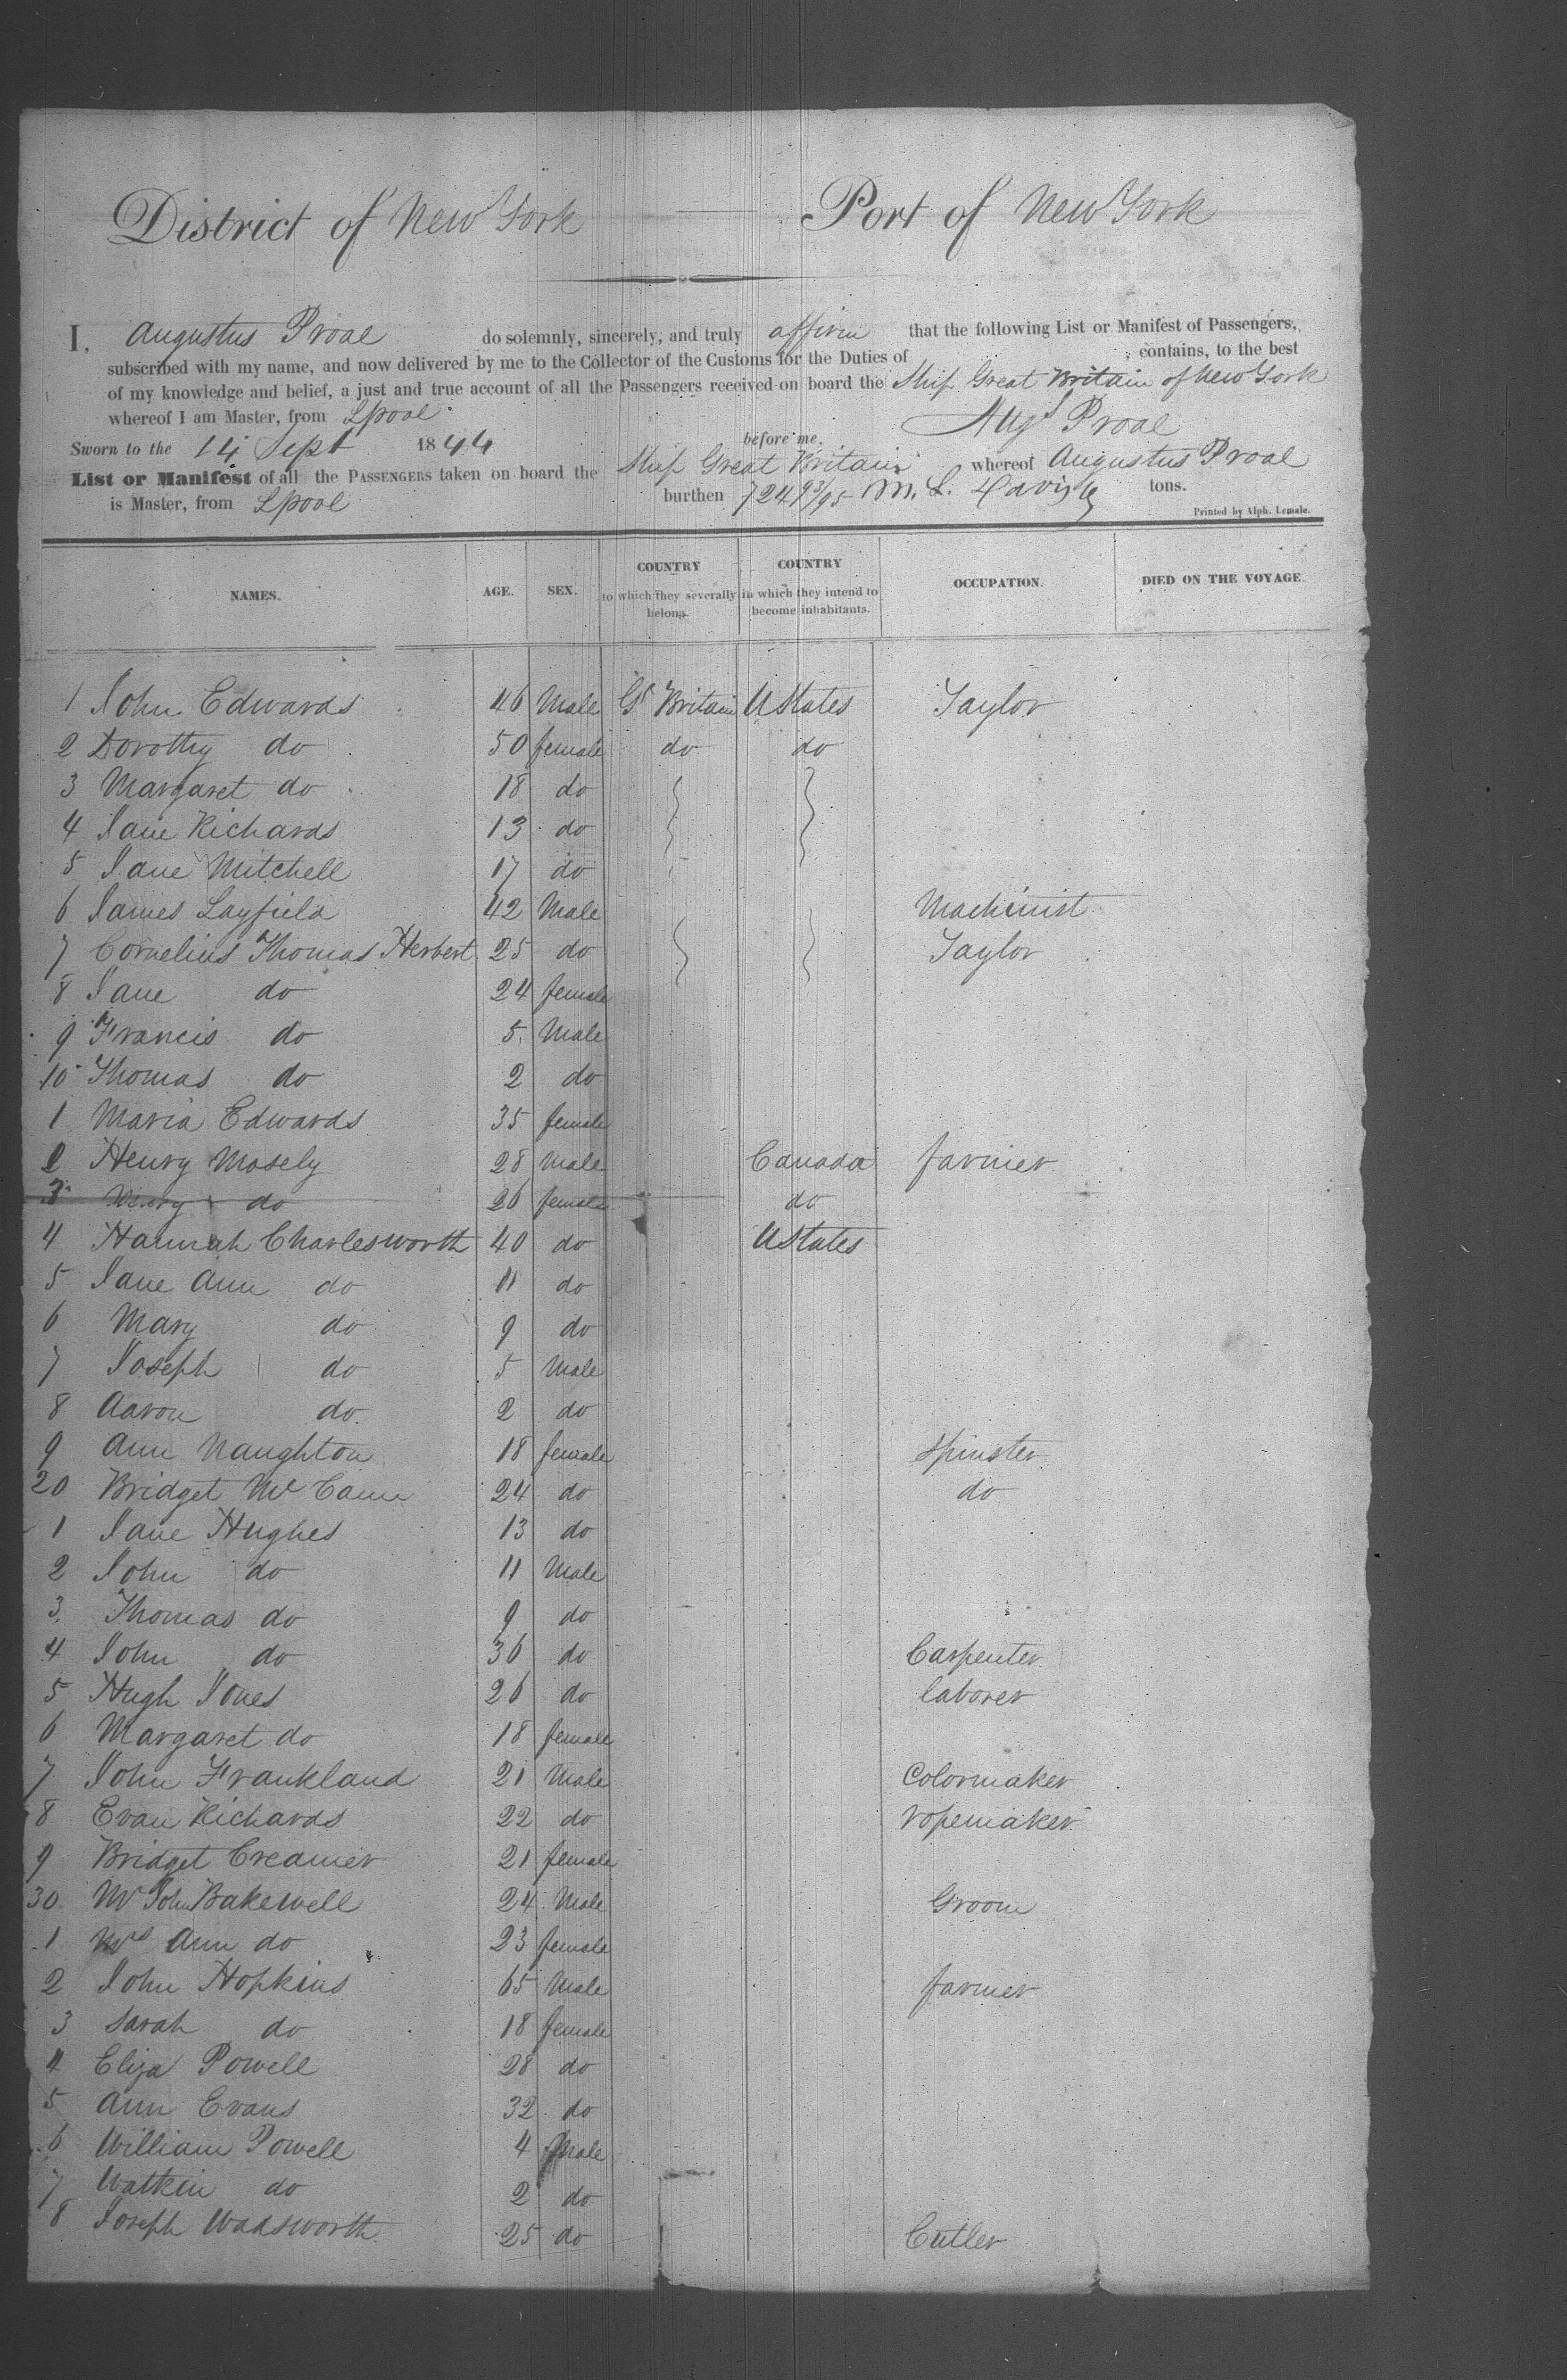 District of New York Port of New York
I, Augustus Proal do solemnly, sincerely, and truly affirm that the following List or Manifest of Passengers,
subscribed with my name, and now delivered by me to the Collector of the Customs for the Duties of ; contains, to the best
of my knowledge and belief, a just and true account of all the Passengers received on board the Ship Great Britain of New York
whereof I am Master, from Lpool
Augs Proal
Sworn to the 14 Sept 1844 before me,
List or Manifest of all the PASSENGERS taken on board the Ship Great Britain whereof Augustus Proal
is Master, from Lpool burthen 724 93/95 M. L. Davis tons.
Printed by Alph. Lemale.
NAMES. AGE. SEX. COUNTRY to which they severally belong. COUNTRY in which they intend to become inhabitants. OCCUPATION. DIED ON THE VOYAGE.
1 John Edwards 46 Male Gt Britain UStates Taylor
2 Dorothy do 50 female do do
3 Margaret do 18 do
4 Jane Richards 13 do
5 Jane Mitchell 17 do
6 James Layfield 42 Male Machinist
7 Cornelius Thomas Herbert 25 do Taylor
8 Jane do 24 female
9 Francis do 5 Male
10 Thomas do 2 do
1 Maria Edwards 35 female
2 Henry Mosely 28 Male Canada farmer
3 Mary do 26 female do
4 Hannah Charlesworth 40 do UStates
5 Jane Ann do 11 do
6 Mary do 9 do
7 Joseph do 5 Male
8 Aaron do 2 do
9 Ann Naughton 18 female Spinster
20 Bridget McCann 24 do do
1 Jane Hughes 13 do
2 John do 11 Male
3 Thomas do 9 do
4 John do 36 do Carpenter
5 Hugh Jones 26 do laborer
6 Margaret do 18 female
7 John Frankland 21 Male Colormaker
8 Evan Richards 22 do ropemaker
9 Bridget Creamer 21 female
30 Mr John Bakewell 24 Male Groom
1 Mrs Ann do 23 female
2 John Hopkins 65 Male farmer
3 Sarah do 18 female
4 Eliza Powell 28 do
5 Ann Evans 32 do
6 William Powell 4 Male
7 Watkin do 2 do
8 Joseph Wadsworth 25 do Cutler